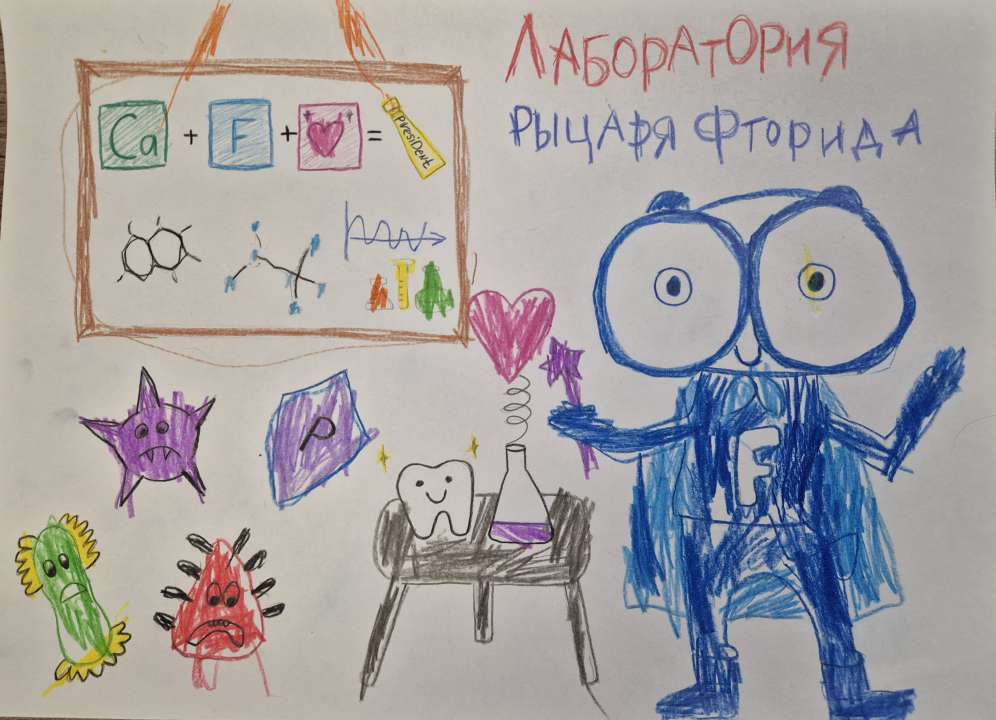 ЛАБОРАТОРИЯ
РЫЦАРЯ ФТОРИДА
Ca + F + =
PresiDent
P
F